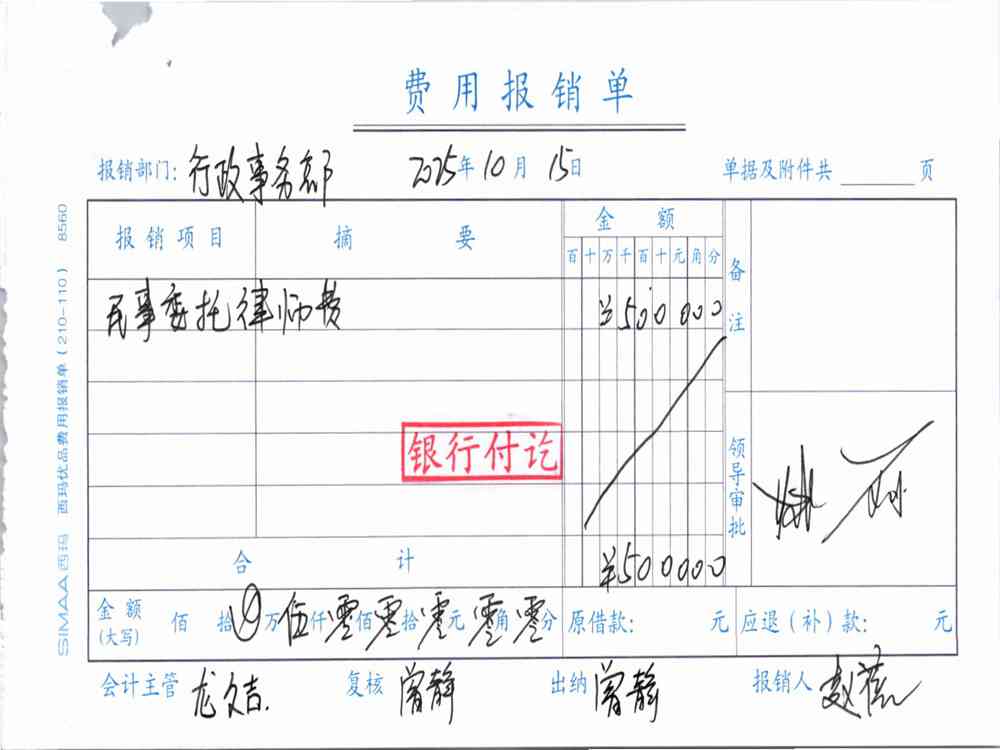 费用报销单
报销部门: 行政事务部 2025年10月15日 单据及附件共 页
报销项目 摘要 金额 备注
百十万千百十元角分
民事委托律师费 ¥500000
银行付讫
领导审批
合计 ¥500000
金额(大写) 佰拾万伍仟零佰零拾零元零角零分 原借款: 元 应退(补)款: 元
会计主管 龙文吉 复核 曾静 出纳 曾静 报销人
SIMAA 西玛 西玛优品费用报销单(210-110) 8560